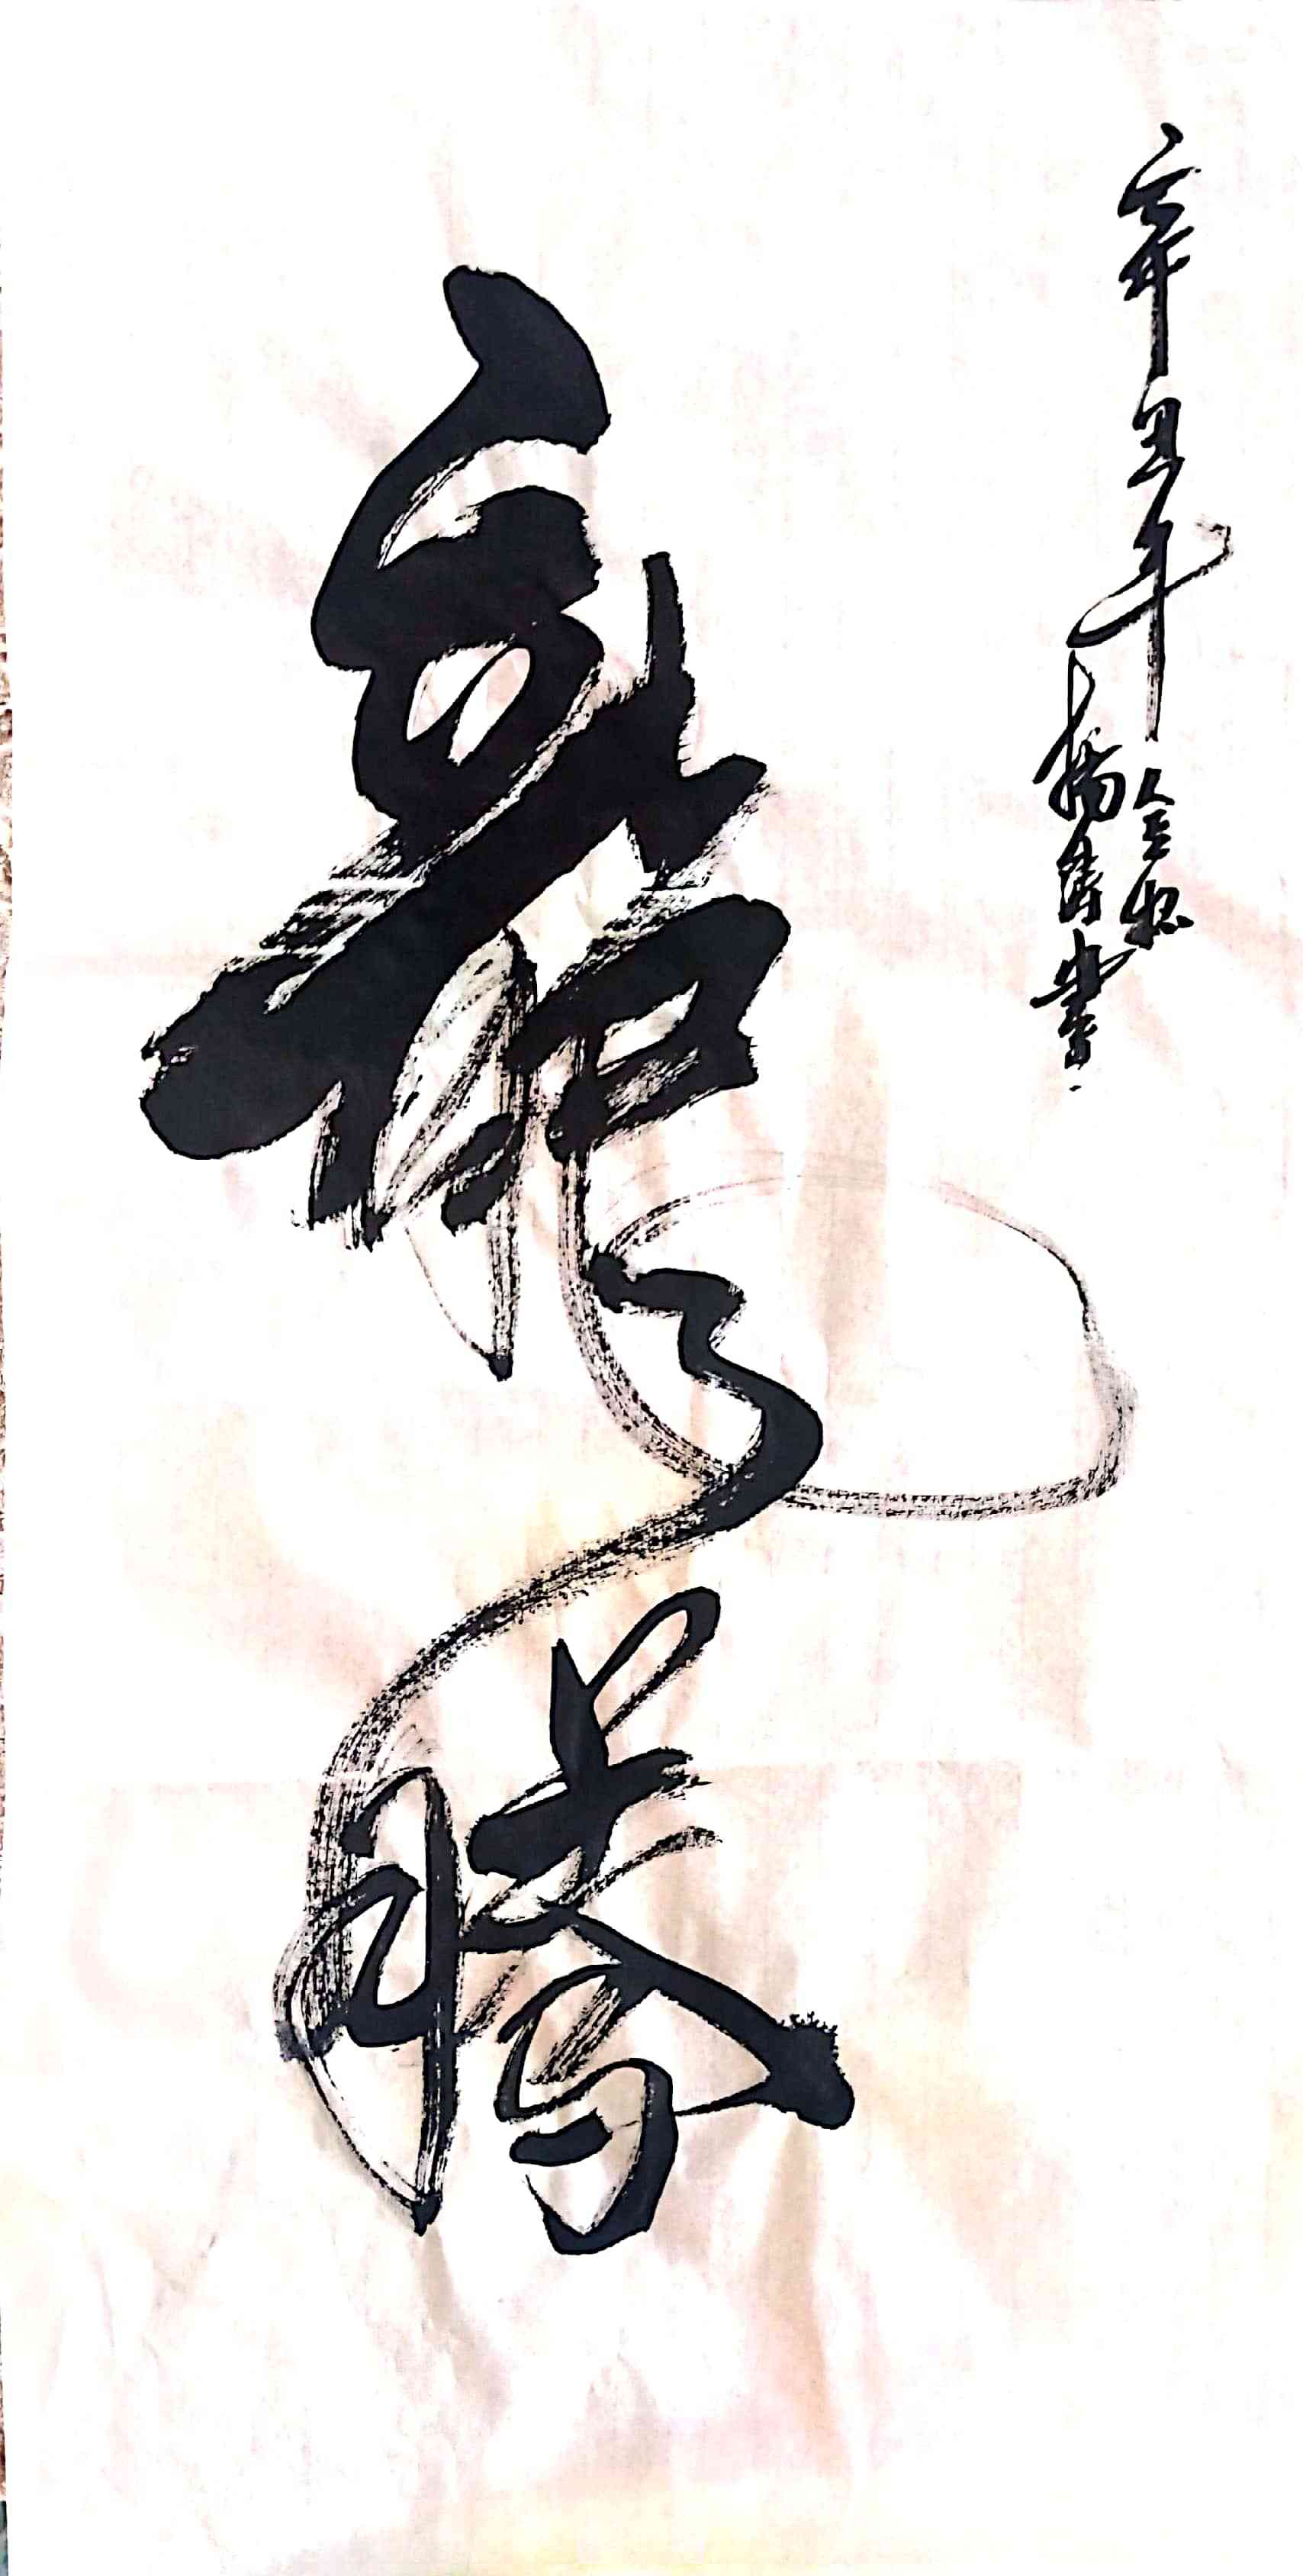 辛丑年金秋
楊濤書
龍騰